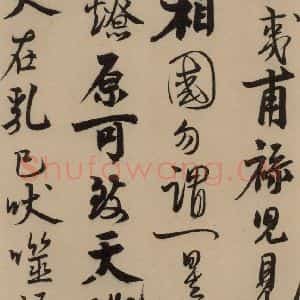 夷甫祿兒見
相國勿謂一星
燎原可致天
在乳已吠噬
Shufawang.cn